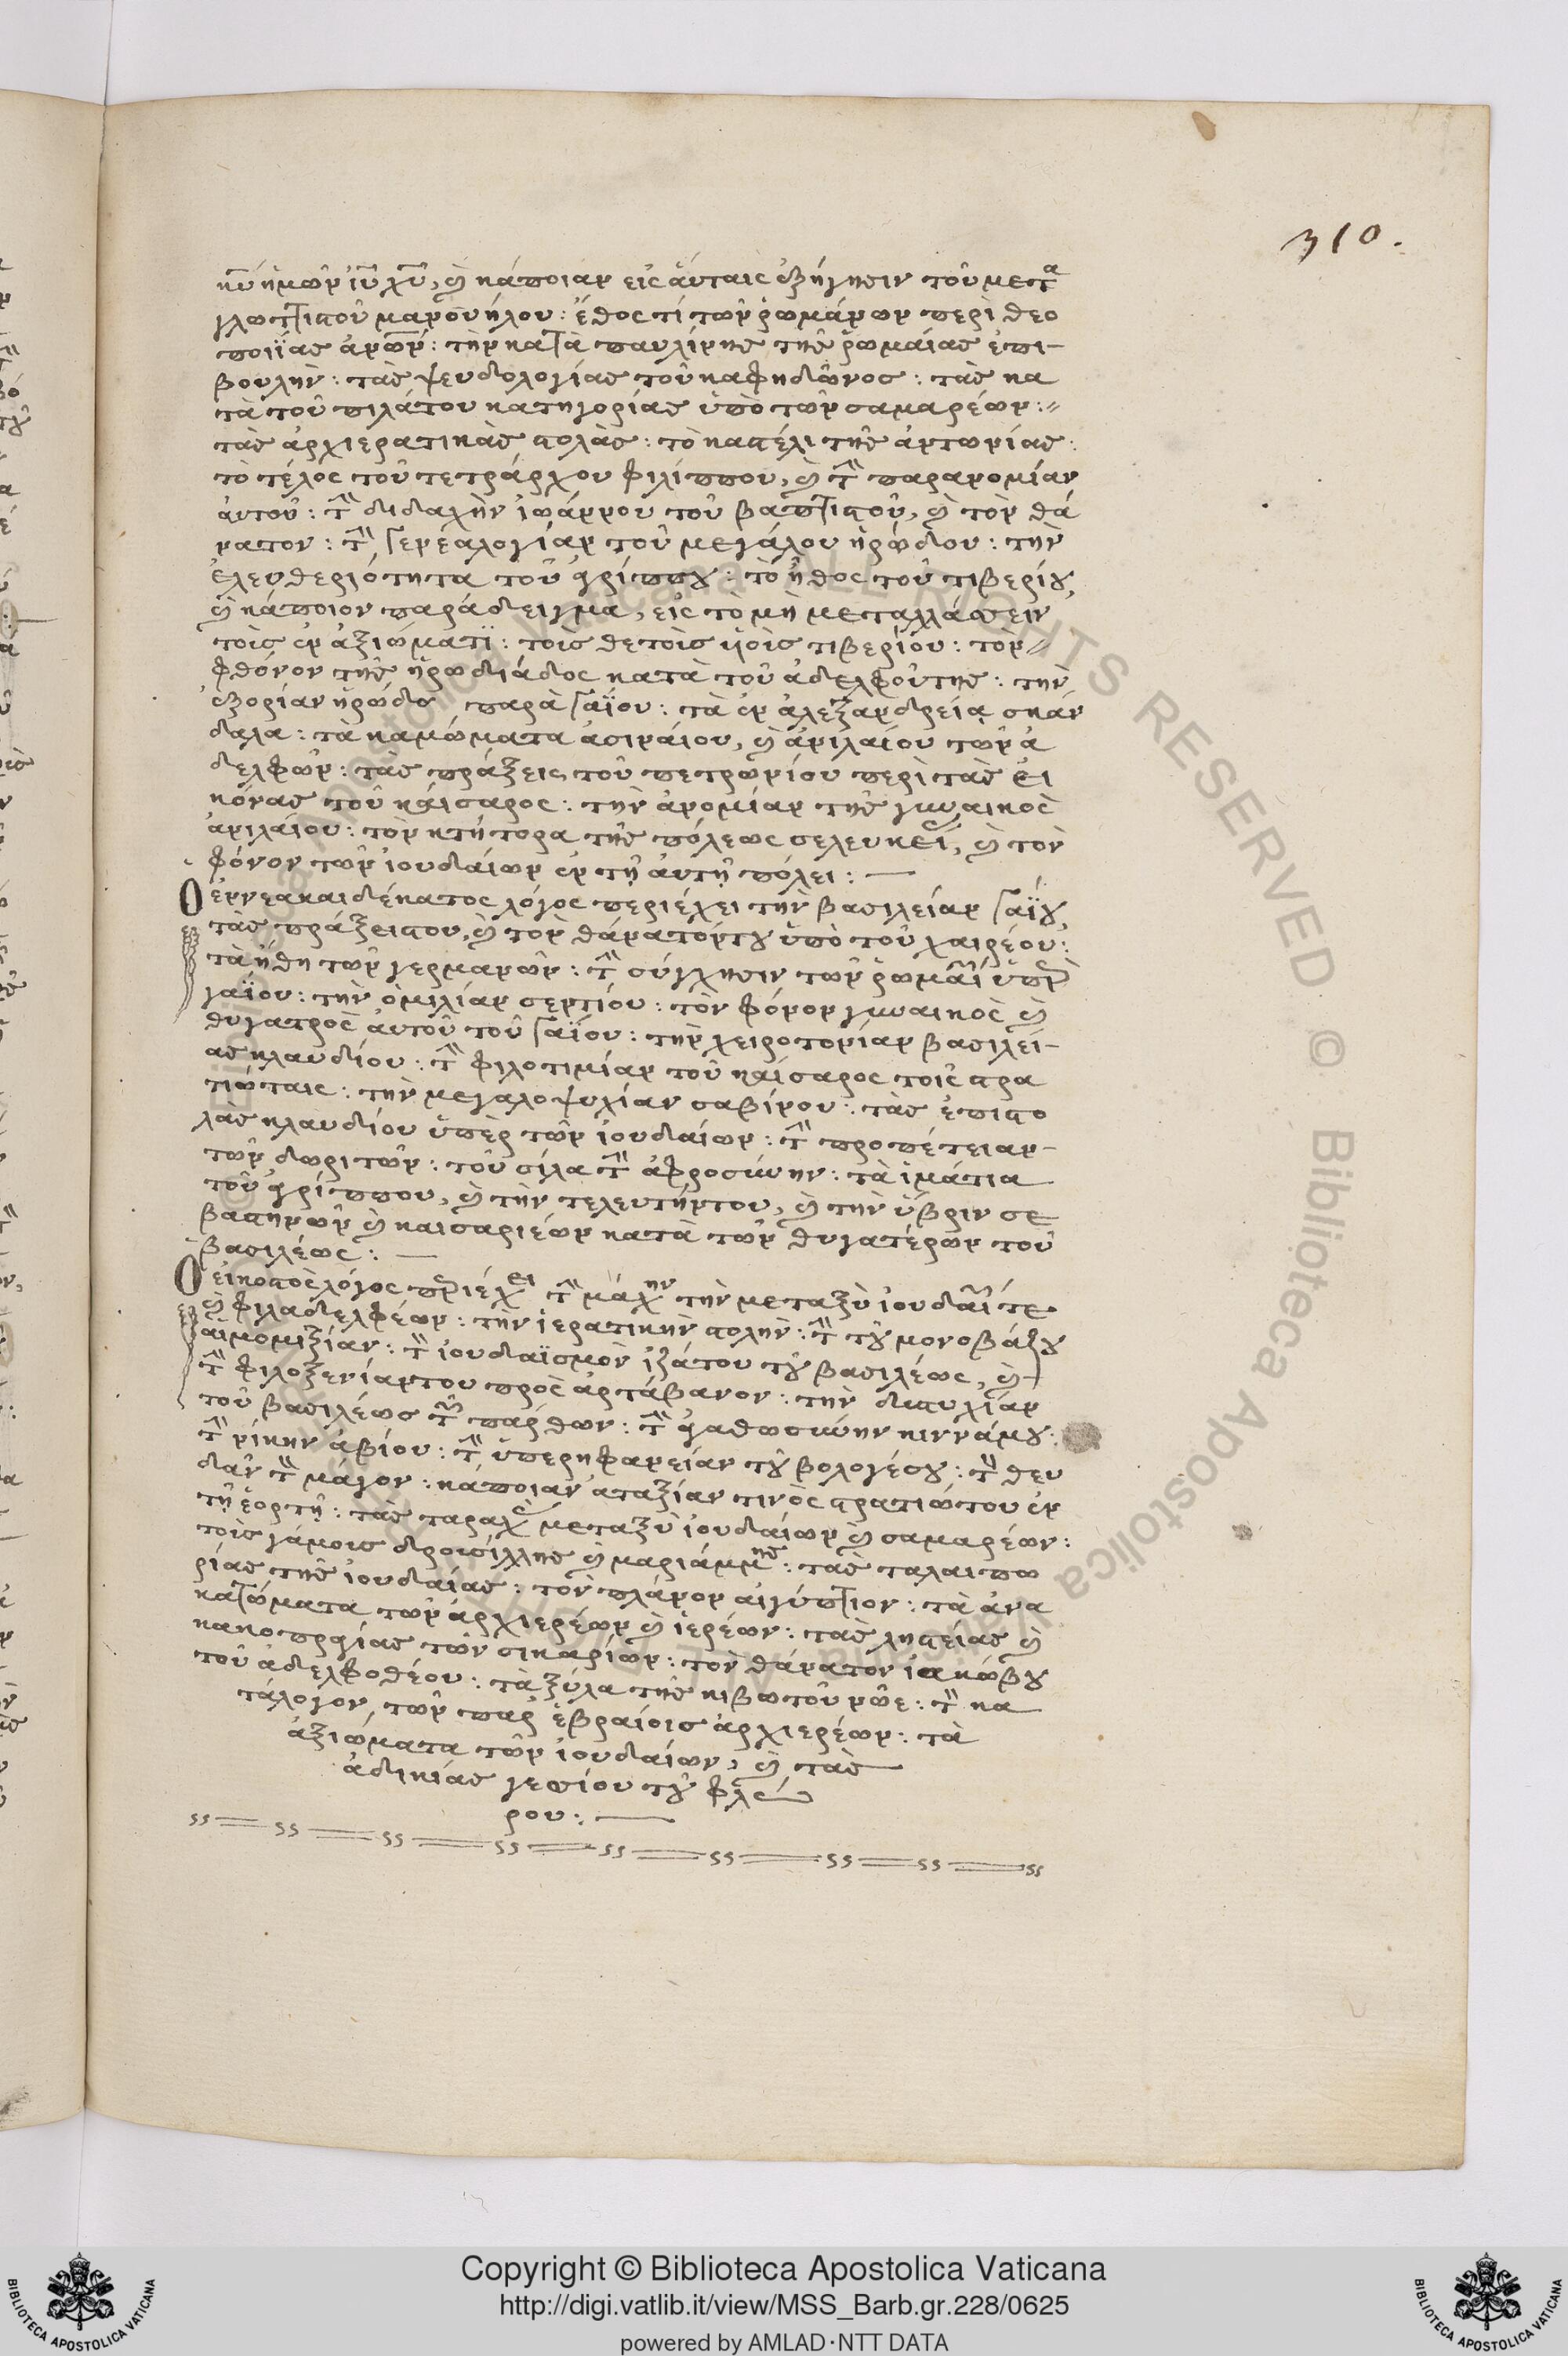 310.
κυ ἡμῶν ιυ χυ, καὶ κάποιαν εἰς ἄυταις ἐξήγησιν τοῦ μετα
γλωττιστοῦ μανουήλου: ἔθος τί τῶν ῥωμάνων περὶ θεο
ποιΐας ἀνων: τὴν κατὰ παυλίνης τῆς ῥωμαίας ἐπι-
βουλήν: τὰς ψευδολογίας τοῦ καφηδῶνος: τὰς κα
τὰ τοῦ πιλάτου κατηγορίας ὑπὸ τῶν σαμαρέων:
τὰς ἀρχιερατικὰς στολὰς: τὸ καστέλι τῆς ἀντωνίας:
τὸ τέλος τοῦ τετράρχου φιλίππου, καὶ τὴν παρανομίαν
ἀυτοῦ: τὴν διδαχὴν ἰωάννου τοῦ βαπτιστοῦ, καὶ τὸν θά
νατον: τὴν γενεαλογίαν τοῦ μεγάλου ἡρώδου: τὴν
ἐλευθεριότητα τοῦ ἀγρίππου: τὸ ἦθος τοῦ τιβερίου,
καὶ κάποιον παράδειγμα, εἰς τὸ μὴ μεταλλάσσειν
τοῖς ἐν ἀξιώματϊ: τοῖς θετοῖς υἱοῖς τιβερίου: τὸν
φθόνον τῆς ἡρωδιάδος κατὰ τοῦ ἀδελφοῦτης: τὴν
ἐξορίαν ἡρώδου παρὰ γαΐου: τὰ ἐν ἀλεξανδρείᾳ σκάν
δαλα: τὰ καμώματα ἀσιναίου, καὶ ἀνιλαίου τῶν ἀ
δελφῶν: τὰς πράξεις τοῦ πετρωνίου περὶ τὰς εἰ
κόνας τοῦ καίσαρος: τὴν ἀνομίαν τῆς γυναικὸς
ἀνιλαίου: τὸν κτήτορα τῆς πόλεως σελευκεί, καὶ τὸν
φόνον τῶν ἰουδαίων ἐν τῇ ἀυτῇ πόλει:
Ὁ ἐννεακαιδέκατος λόγος περιέχει τὴν βασιλείαν γαΐου,
τὰς πράξειςτου, καὶ τὸν θάνατόντου ὑπὸ τοῦ χαιρέου:
τὰ ἤθη τῶν γερμανῶν: τὴν σύγχησιν τῶν ῥωμαί ὑπὲρ
γαΐου: τὴν ὁμιλίαν σεντίου: τὸν φόνον γυναικὸς καὶ
θυγατρὸς ἀυτοῦ τοῦ γαΐου: τὴν χειροτονίαν βασιλεί-
ας κλαυδίου: τὴν φιλοτιμίαν τοῦ καίσαρος τοῖς στρα
τιώταις: τὴν μεγαλοψυχίαν σαβίνου: τὰς ἐπιστο
λὰς κλαυδίου ὑπὲρ τῶν ἰουδαίων: τὴν προπέτειαν-
τῶν δωριτῶν: τοῦ σίλα τὴν ἀφροσύνην: τὰ ἱμάτια
τοῦ ἀγρίππου, καὶ τὴν τελευτήντου, καὶ τὴν ὕβριν σε
βαστηνῶν καὶ καισαριέων κατὰ τῶν θυγατέρων τοῦ
βασιλέως:
Ὁ εἰκοστὸς λόγος περιέχει τὴν μάχην τὴν μεταξὺ ἰουδαί τε
καὶ φιλαδελφέων: τὴν ἱερατικὴν στολὴν: τὴν τοῦ μονοβάζου
αἱμομιξίαν: τὸν ἰουδαϊσμὸν ἰζάτου τοῦ βασιλέως, καὶ
τὴν φιλοξενίαντου πρὸς ἀρτάβανον: τὴν δυστυχίαν
τοῦ βασιλέως τῶν πάρθων: τὴν ἀγαθωσύνην κιννάμου:
τὴν νίκην ἀβίου: τὴν ὑπερηφανείαν τοῦ βολογέσου: τὸν θευ
δᾶν τὸν μάγον: κάποιαν ἀταξίαν τινὸς στρατιώτου ἐν
τῇ ἑορτῇ: τὰς ταραχὲς μεταξὺ ἰουδαίων καὶ σαμαρέων:
τοῖς γάμοις δρουσίλλης καὶ μαριάμμης: τὰς ταλαιπω
ρίας τῆς ἰουδαίας: τὸν πλάνον αἰγύπτιον: τὰ ἀνα
κατώματα τῶν ἀρχιερέων καὶ ἱερέων: τὰς ληστείας καὶ
κακοπραγίας τῶν σικαρίων: τὸν θάνατον ἰακώβου
τοῦ ἀδελφοθέου: τὰ ξύλα τῆς κιβωτοῦ νῶε: τὸν κα
τάλογον τῶν παρ ἑβραίοις ἀρχιερέων: τὰ
ἀξιώματα τῶν ἰουδαίων, καὶ τὰς
ἀδικίας γεσσίου τοῦ φλώ
ρου:
Copyright © Biblioteca Apostolica Vaticana
http://digi.vatlib.it/view/MSS_Barb.gr.228/0625
powered by AMLAD·NTT DATA